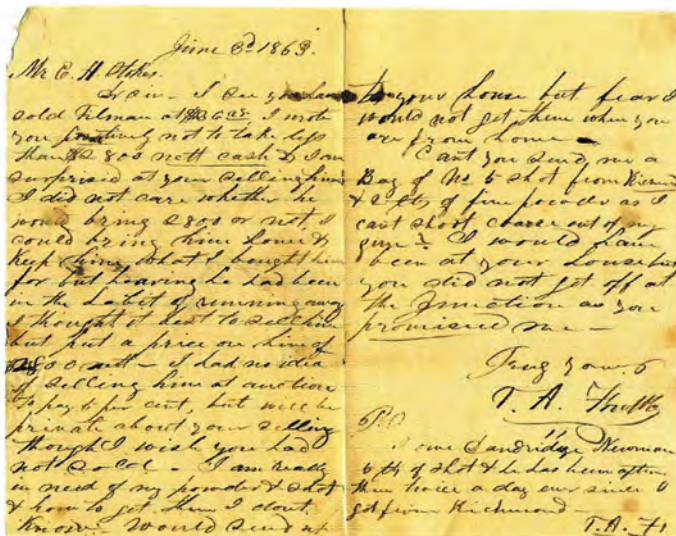 June 3d 1863.
Mr E. H. Stokes.
Dr Sir - I see you have
sold Tilman at I wrote
you positively not to take less
than $2800 nett cash & I am
surprised at your selling him
I did not care whether he
would bring 2800 or not, I
could bring him home &
keep him, what I bought him
for but hearing he had been
in the habit of running away
I thought it best to sell him
but put a price on him of
2800 nett - I had no idea
of selling him at auction
to pay 6 per cent, but will be
private about your selling
though I wish you had
not sold - I am really
in need of my powder & shot
& how to get them I dont
know - Would send up
to your house but fear I
would not get them when you
are from home -
Cant you send me a
Bag of No 5 shot from
& 2 of fine powder as I
cant shoot coarse out of my
gun I would have
been at your house but
you did not get off at
the Junction as you
promised me -
Truly yours
T. A.
P.S
I owe Sandridge Newman
6 of shot & he has been after
them twice a day ever since I
got from Richmond -